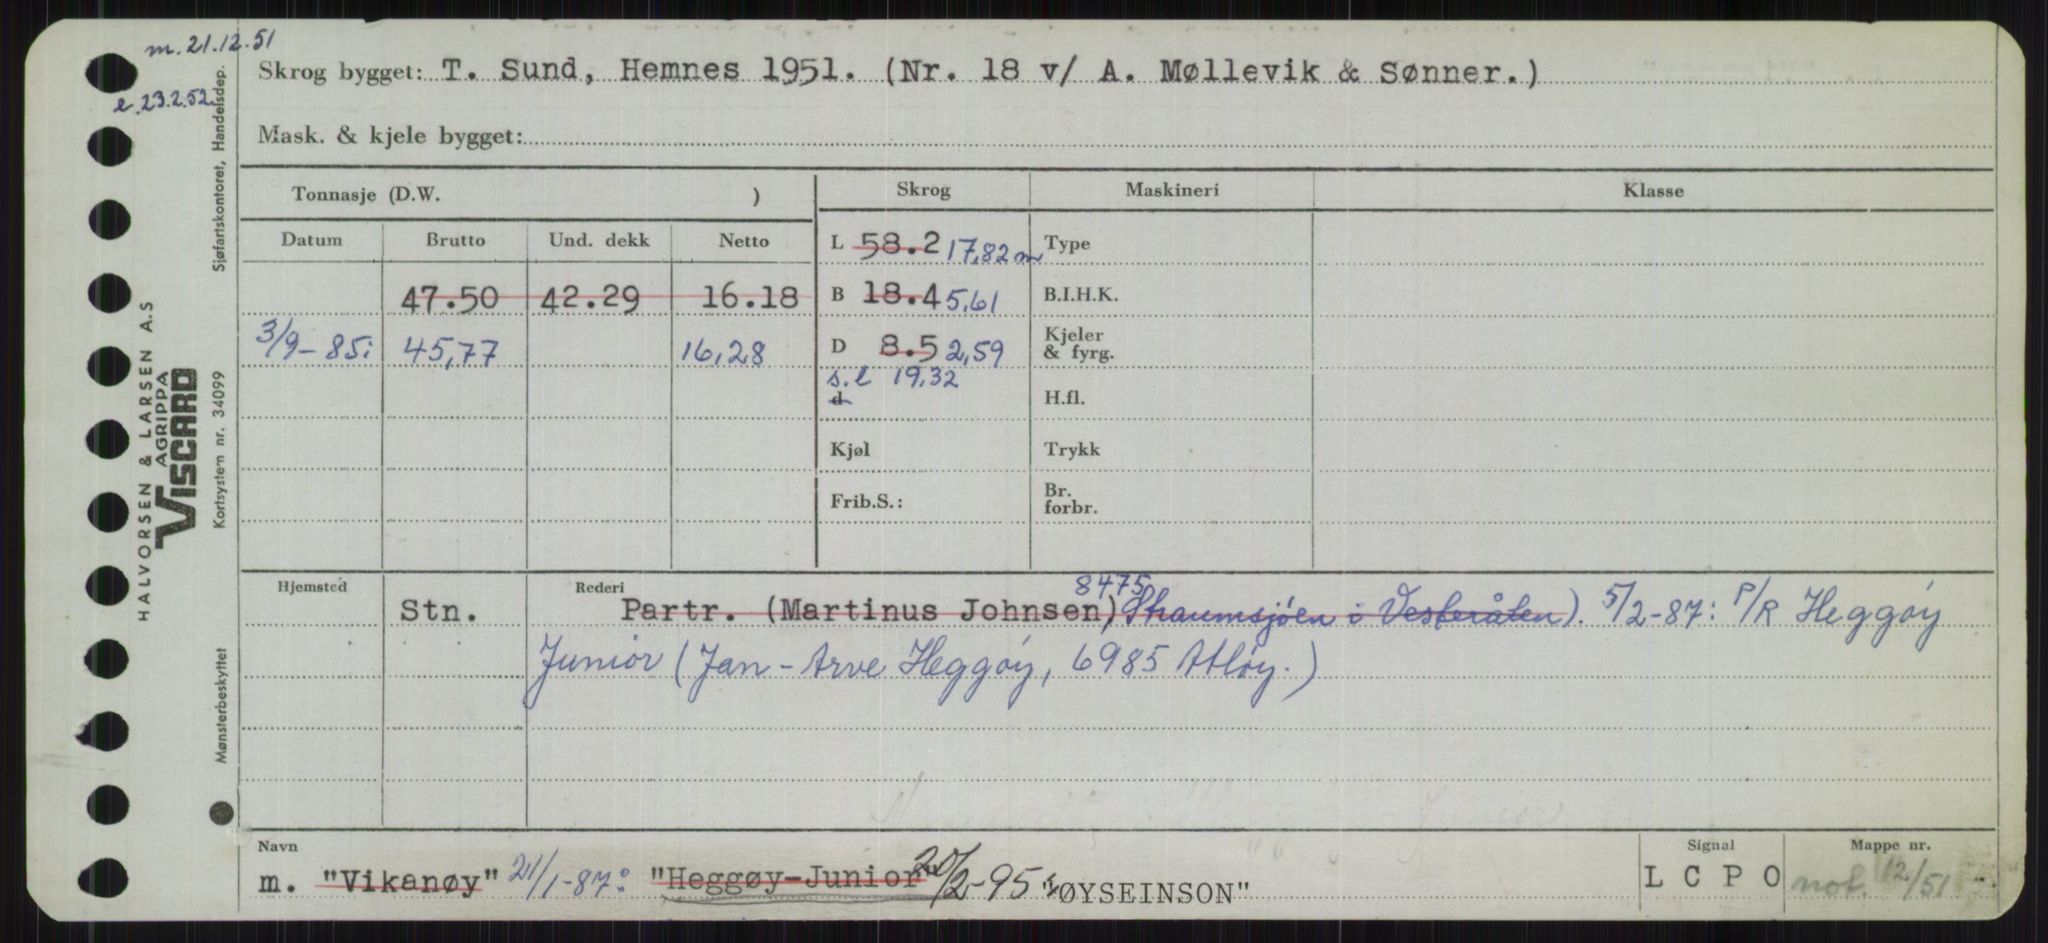 m. 21.12.51
e. 23.2.52
Skrog bygget: T. Sund, Hemnes 1951. (Nr. 18 v/ A. Møllevik & Sønner.)
Mask. & kjele bygget:
Tonnasje (D.W. )
Skrog Maskineri Klasse
Datum Brutto Und. dekk Netto
L 58.2 17,82 m Type
47.50 42.29 16.18
B 18.4 5,61 B.I.H.K.
3/9-85: 45,77 16,28
D 8.5 2,59 Kjeler & fyrg.
s.l 19,32
d H.fl.
Kjøl Trykk
Frib.S.: Br. forbr.
Hjemsted Rederi
8475
Stn. Partr. (Martinus Johnsen, Straumsjøen i Vesterålen). 5/2-87: P/R Heggøy
Junior (Jan-Arve Heggøy, 6985 Atløy.)
Navn Signal Mappe nr.
m. "Vikanøy" 21/1-87: "Heggøy-Junior" 20/2-95: "ØYSEINSON" L C P O not. 12/51
Sjøfartskontoret, Handelsdep.
HALVORSEN & LARSEN A.S
AGRIPPA
VISCARD
Kortsystem nr. 34099
Mønsterbeskyttet